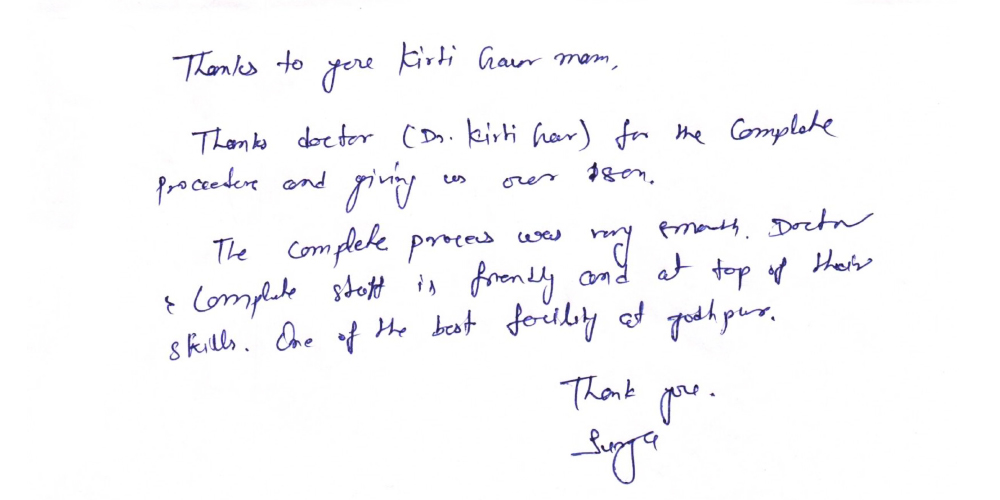 Thanks to you Kirti Gaur mam,
Thanks doctor (Dr. Kirti Gaur) for the Complete
procedure and giving us our son.
The complete process was very smooth. Doctor
& Complete staff is friendly and at top of their
skills. One of the best facility at Jodhpur.
Thank you.